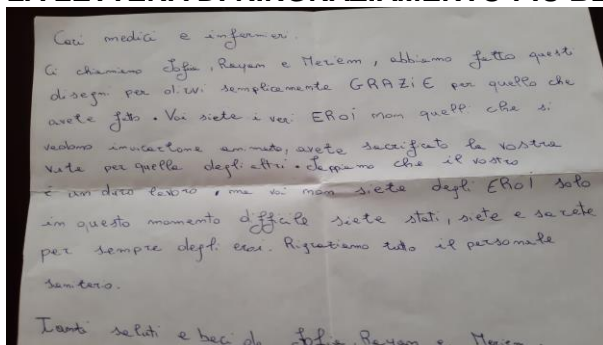 LA LETTERA DI RINGRAZIAMENTO PIÙ BE
Cari medici e infermieri.
Ci chiamiamo Sofia, Rayan e Meriem, abbiamo fatto questi
disegni per dirvi semplicemente GRAZiE per quello che
avete fatto. Voi siete i veri ERoi non quelli che si
vedono in cartone animato, avete sacrificato la vostra
vita per quella degli altri. Sappiamo che il vostro
è un duro lavoro, ma voi non siete degli ERoi solo
in questo momento difficile siete stati, siete e sarete
per sempre degli eroi. Rigratiamo tutto il personale
sanitaro.
Tanti saluti e baci da Sofia, Rayan e Meriem.